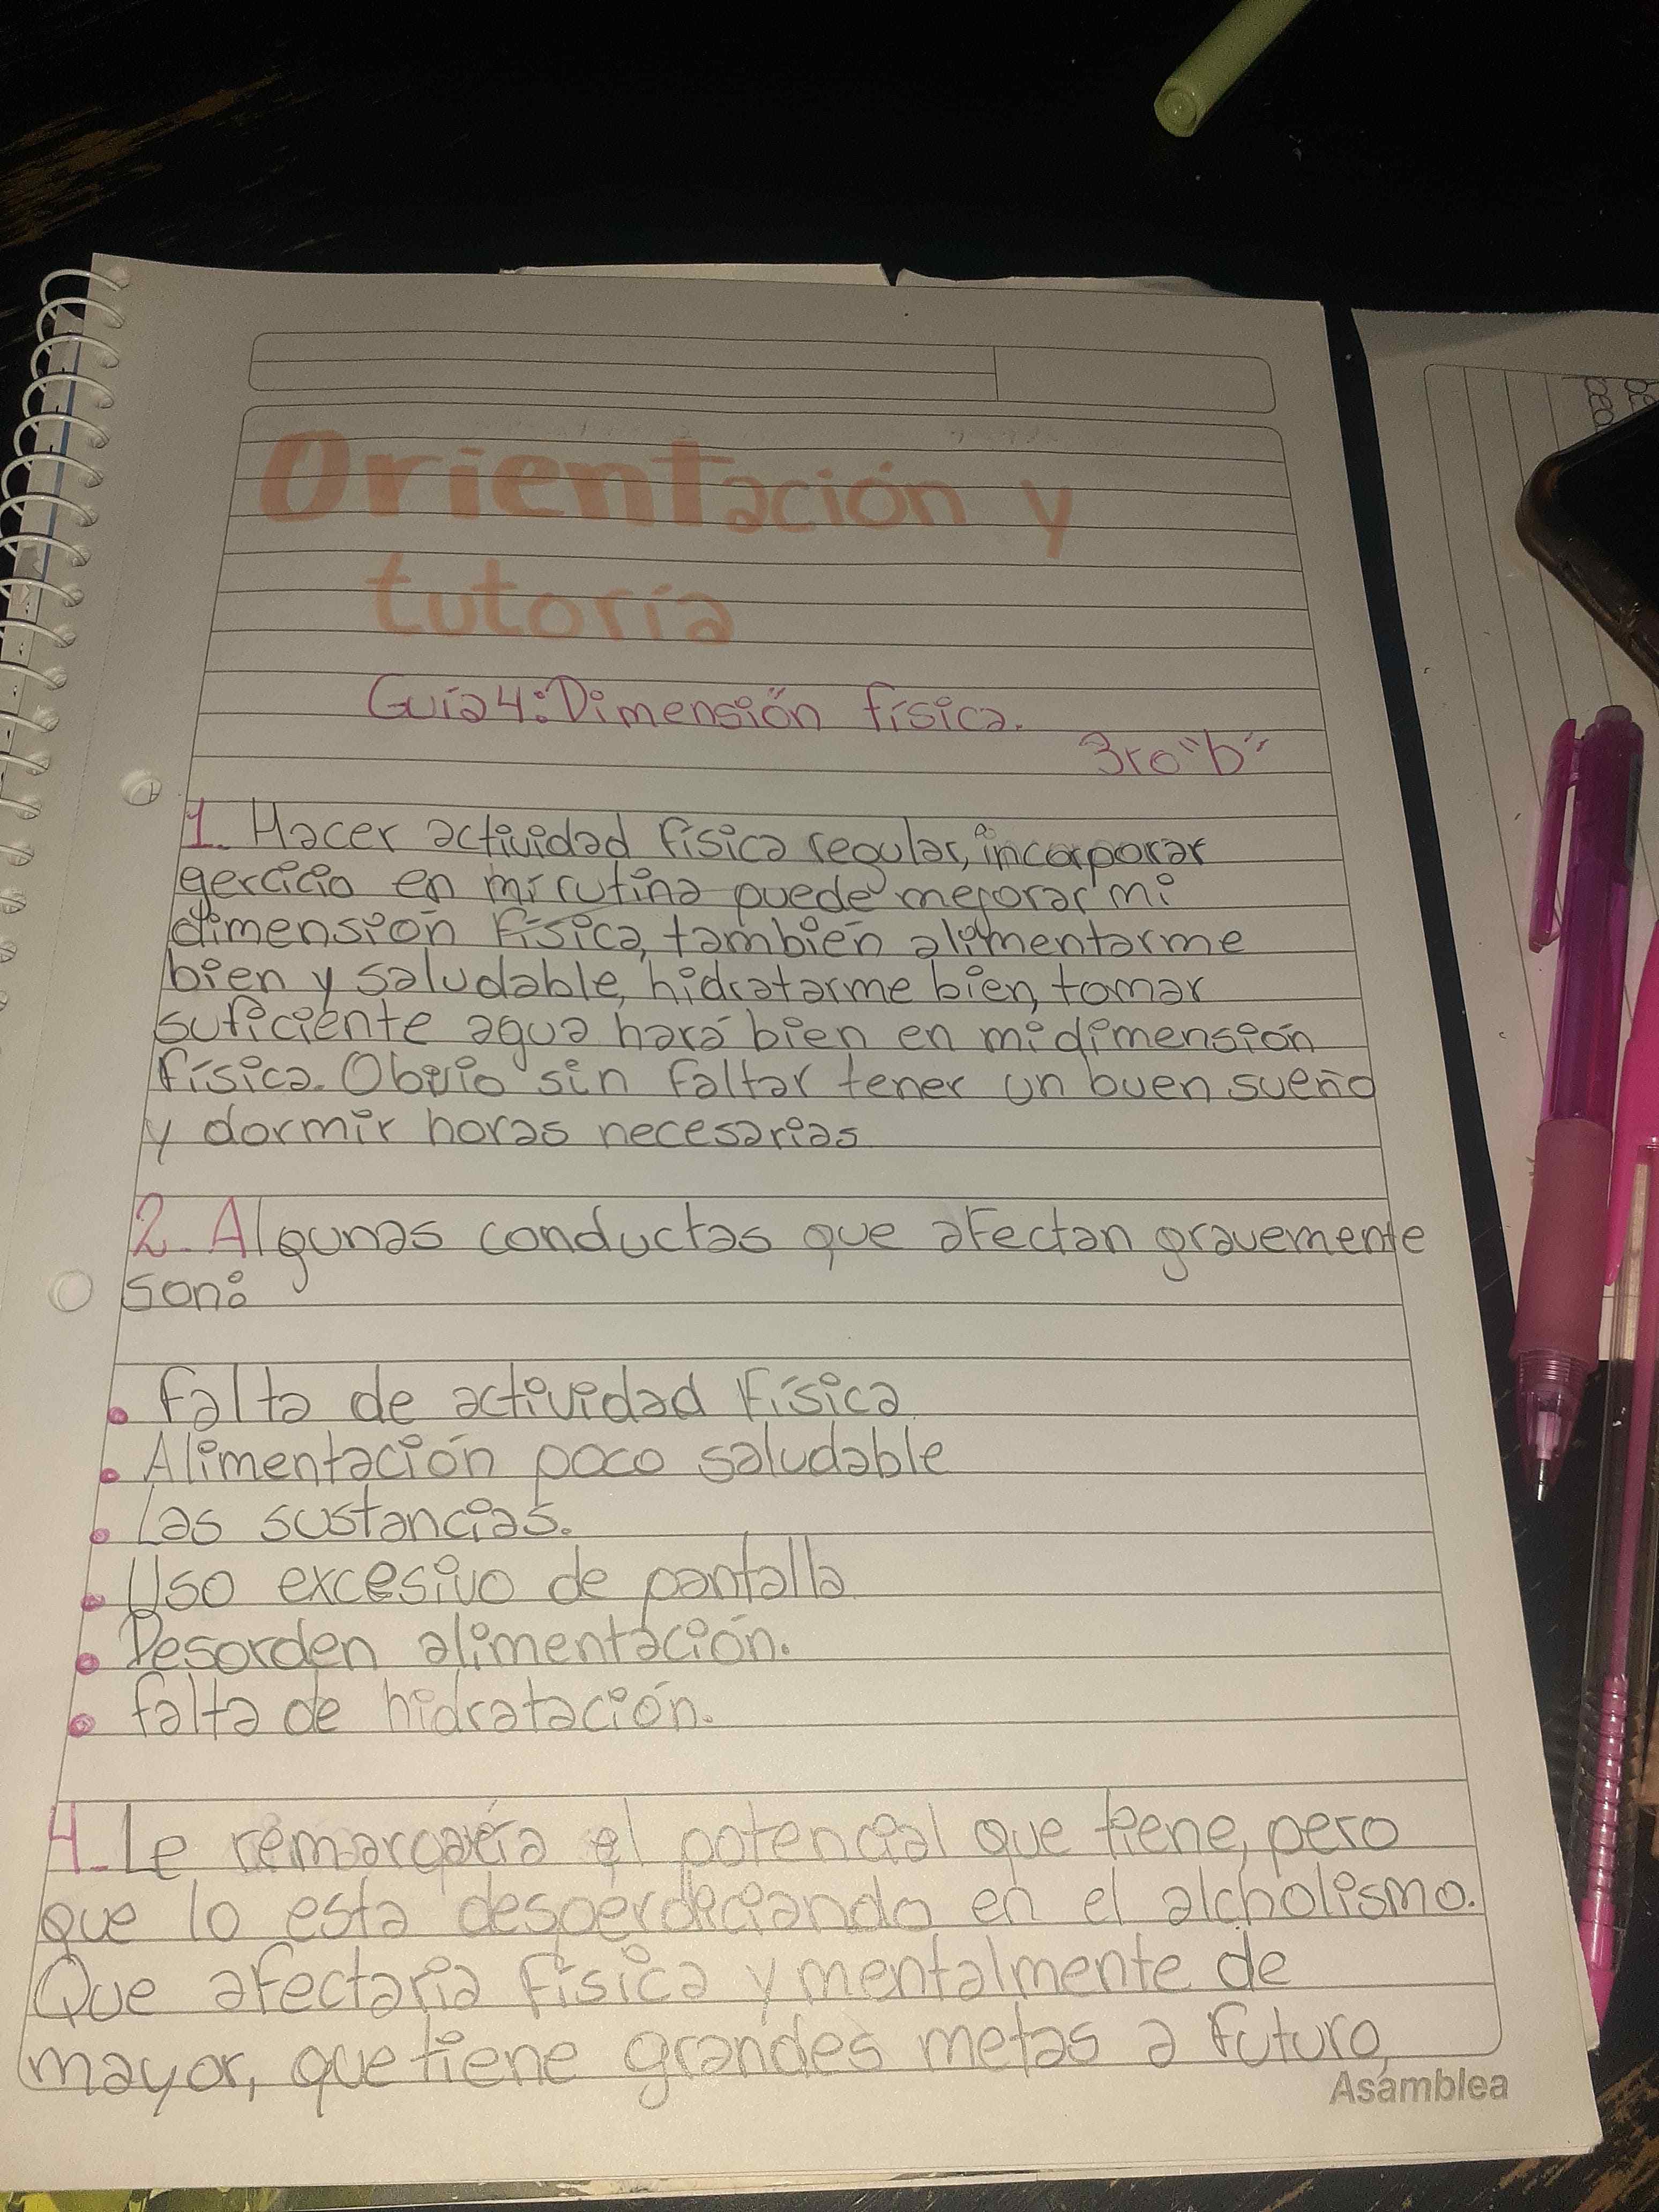 Orientación y
tutoría
Guía 4: Dimensión física.
3ro "b"
1. Hacer actividad física regular, incorporar
gercicio en mi rutina puede mejorar mi
dimensión física, también alimentarme
bien y saludable, hidratarme bien, tomar
suficiente agua hará bien en mi dimensión
física. Obvio sin faltar tener un buen sueño
y dormir horas necesarias
2. Algunas conductas que afectan gravemente
son:
• Falta de actividad física
• Alimentación poco saludable
• Las sustancias.
• Uso excesivo de pantalla
• Desorden alimentación.
• falta de hidratación.
4. Le remarcaría el potencial que tiene, pero
que lo esta desperdiciando en el alcholismo.
Que afectaria física y mentalmente de
mayor, que tiene grandes metas a futuro,
Asamblea